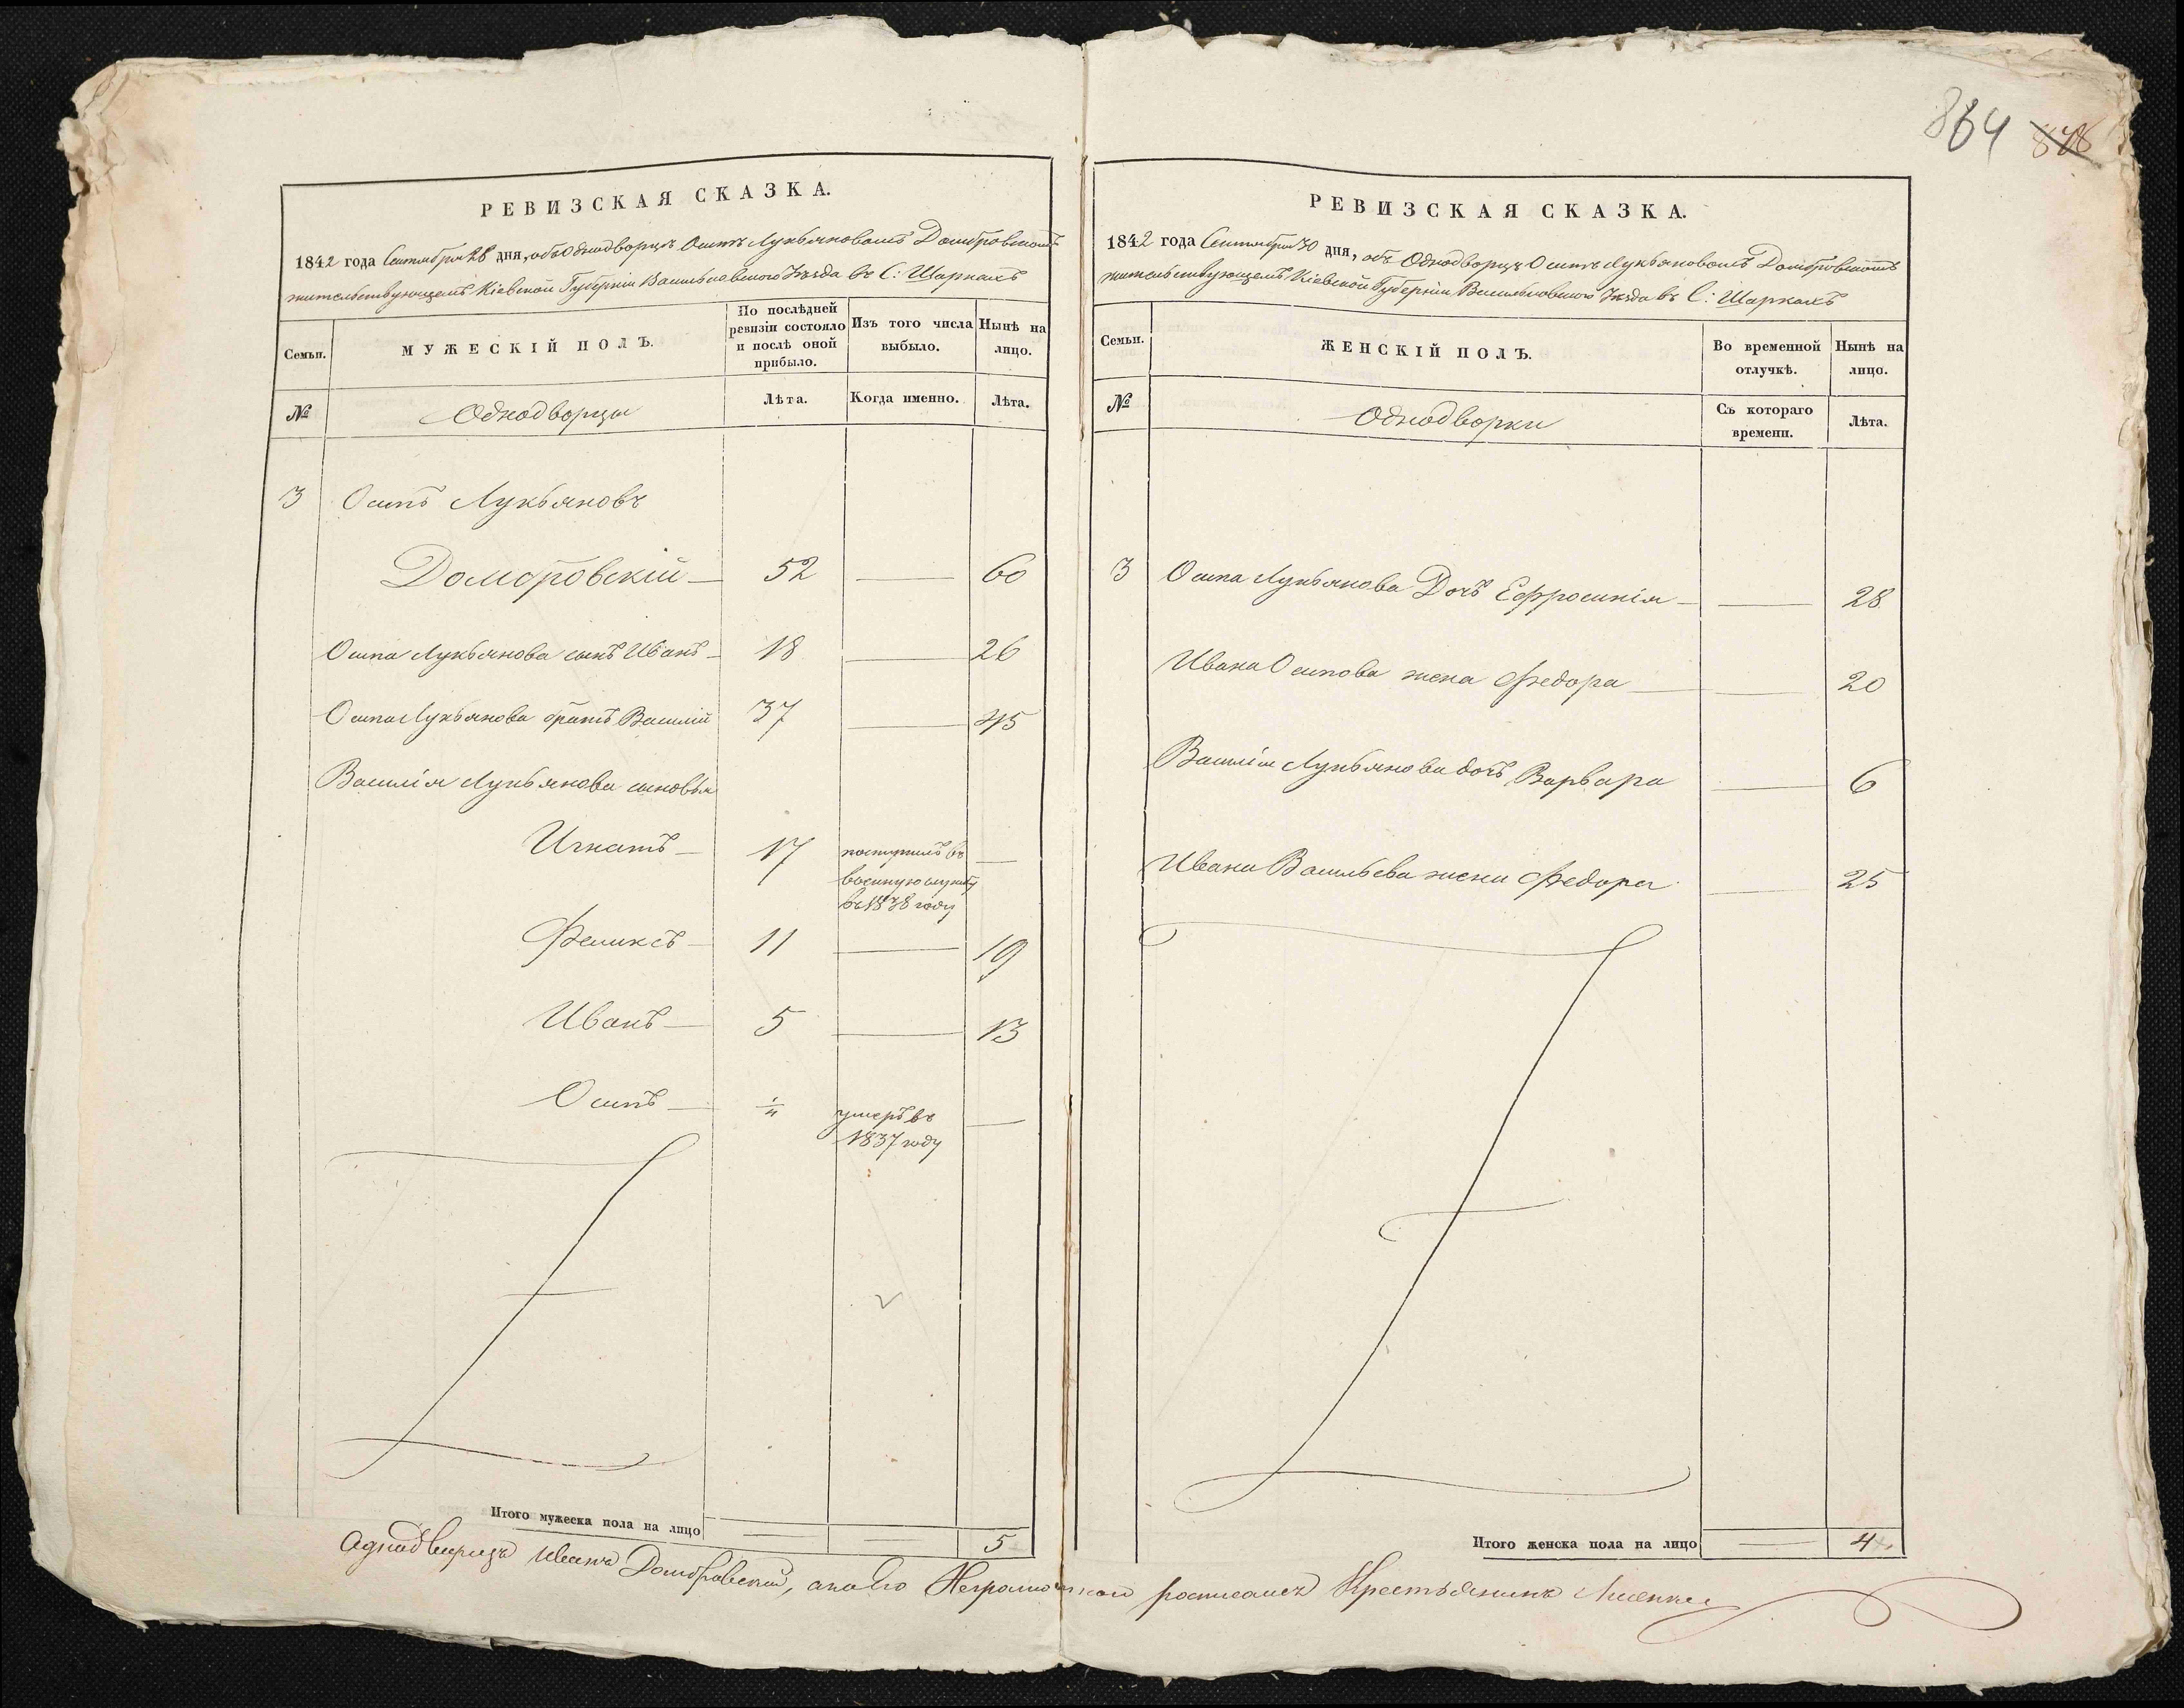 864 878
РЕВИЗСКАЯ СКАЗКА.
1842 года Сентября 28 дня, объ Однодворцѣ Осипѣ Лукьяновомъ Домбровскомъ
жительствующемъ Кіевской Губерніи Васильковскаго Уѣзда въ С: Шаркахъ
Семьи.
МУЖЕСКІЙ ПОЛЪ.
По послѣдней ревизіи состояло и послѣ оной прибыло.
Изъ того числа выбыло.
Нынѣ на лицо.
№
Однодворцы
Лѣта.
Когда именно.
Лѣта.
3 Осипъ Лукьяновъ
Домбровскій 52 — 60
Осипа Лукьянова сынъ Иванъ 18 — 26
Осипа Лукьянова братъ Василій 37 — 45
Василія Лукьянова сыновья
Игнатъ 17 поступилъ въ —
военную службу
въ 1838 году
Феликсъ 11 — 19
Иванъ 5 — 13
Осипъ ¼ умеръ въ —
1837 году
Итого мужеска пола на лицо — — 5
РЕВИЗСКАЯ СКАЗКА.
1842 года Сентября 30 дня, объ Однодворцѣ Осипѣ Лукьяновомъ Домбровскомъ
жительствующемъ Кіевской Губерніи Васильковскаго Уѣзда въ С: Шаркахъ
Семьи.
ЖЕНСКІЙ ПОЛЪ.
Во временной отлучкѣ.
Нынѣ на лицо.
№
Однодворки
Съ котораго времени.
Лѣта.
3 Осипа Лукьянова Дочь Ефросинія — 28
Ивана Осипова жена Федора — 20
Василія Лукьянова дочь Варвара — 6
Ивана Васильева жена Федора — 25
Итого женска пола на лицо — 4
Аднадвирецъ Иванъ Домбравский, анаЪго росписался Крестьянинъ